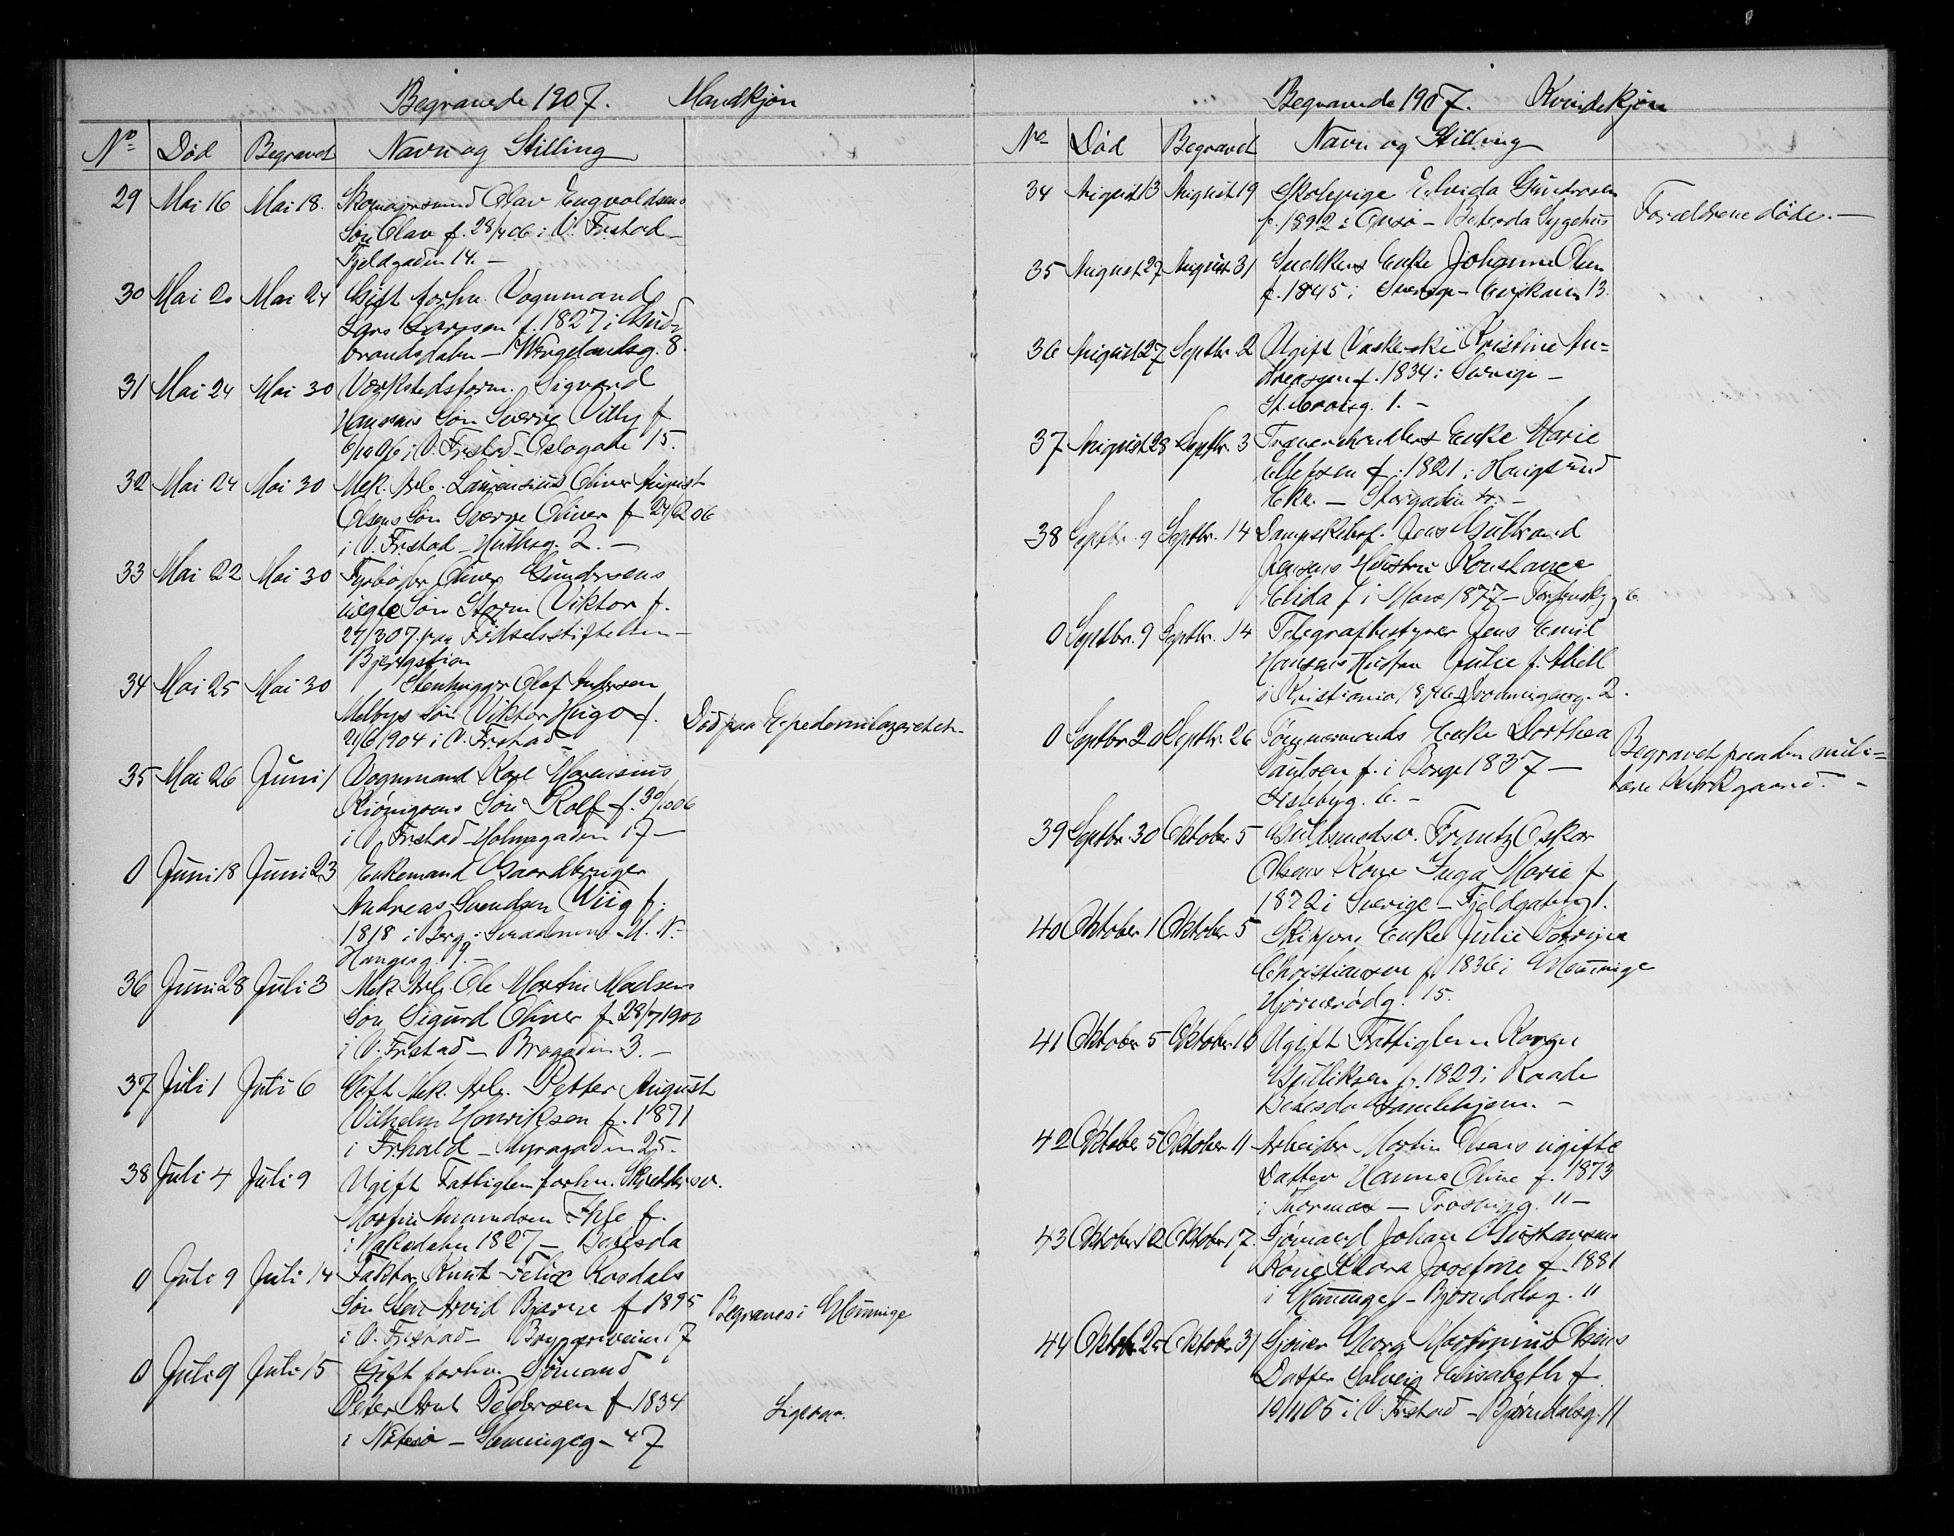 Begravede 1907. Mandkjøn
No Død Begravet Navn og Stilling
29 Mai 16 Mai 18. Skomagersvend Olav Engvoldsens
Søn Olav f. 28/4 06 i V. Frstad -
Fjeldgaden 14. -
30 Mai 20 Mai 24 Gift forhv. Vognmand
Lars Larssen f. 1827 i Gud=
brandsdalen - Wergelandsg. 8.
31 Mai 24 Mai 30 Værkstedsform. Sigvard
Hansens Søn Sverre Villy f.
6/10 06 i V. Frstad - Oslogade 15.
32 Mai 24 Mai 30 Mek. Arb. Laurensius Oliver August
Olsens Søn Sverre Oliver f 24/2 06
i V. Frstad - 2. -
33 Mai 22 Mai 30 Fyrbøder Oliver Gundersens
uegte Søn Storm Viktor f.
27/3 07 paa Fødselsstiftelsen -
34 Mai 25 Mai 30 Stenhugger Olaf Andersen
Melbys Søn Viktor Hugo f.
21/6 1904 i V. Frstad -
Død paa Epedemilazarettet. -
35 Mai 26 Juni 1 Vognmand Karl Marensius
Søn Rolf f. 30/10 06
i V. Frstad - Holmegaden 17 -
0 Juni 18 Juni 23 Enkemand Gaardbruger
Andreas Svendsen Wiig f.
1818 i Berg - Smaalenene
36 Juni 28 Juli 3 Mek. Arb. Ole Martin Madsens
Søn Sigurd Oliver f. 28/7 1900
i V. Frstad - Brogaden 3. -
37 Juli 1 Juli 6 Gift Mek. Arb. Petter August
Vilhelm Henriksen f. 1871
i Frhald - Myragaden 25.
38 Juli 4 Juli 9 Ugift Fattiglem forhv. Skreddersv.
Martin Amundsen f.
i 1827 - Betesda
0 Juli 9 Juli 14 Faktor Knut Felix Rosdals
Søn Arvid Bjarne f 1895
i V. Frstad - Bryggeriveien 17
Begraves i Glemminge
0 Juli 9 Juli 15 Gift forhv. Sømand
Peter Arnt Pedersen f 1834
i - Glemmingeg - 47
Ligesaa.
Begravede 1907. Kvindekjøn
No Død Begravet Navn og Stilling
34 August 13 August 19 Skolepige Elvida Gundersen
f. 1892 i Onsø - Betesda Sygehus
Forældrene døde. -
35 August 27 August 31 Snekkers Enke Johanne Olsen
f. 1845 i Sverige - 13.
36 August 27 Septbr. 2 Ugift Vaskerske Kristine An=
dreasen f. 1834 i Sverige -
St. Croixg. 1. -
37 August 28 Septbr. 3 Trævarehandlers Enke Marie
Ellefsen f. 1821 i Haugsund
Eker. - Storgaden 4. -
38 Septbr. 9 Septbr. 14 Dampskibsf. Jens Gulbrand
Jensens Hustru Konstance
Elida f i Moss 1877 -
0 Septbr. 9 Septbr. 14 Telegrafbestyrer Jens Emil
Hansens Hustru Julie f. Abell
i Kristiania 2.
0 Septbr 20 Septbr. 26 Tømmermands Enke Dorthea
Paulsen f. i Borge 1837 -
Lislebyg. 6. -
Begravet paa den mili=
tære Kirkegaard. -
39 Septbr. 30 Oktober 5 Guldsmedsv. Frantz Oskar
Olsens Kone Inga Marie f
1872 i Sverige - Fjeldgaten 1.
40 Oktober 1 Oktober 5 Skippers Enke Julie
Christiansen f. 1836 i Glemminge
15.
41 Oktober 5 Oktober 10 Ugift Fattiglem Karen
Gulliksen f. 1829 i Raade
Betesda Gamlehjem. -
42 Oktober 5 Oktober 11 Arbeider Martin Olsens ugifte
Datter Hanna Oline f. 1873
i - Trosvigg. 11 -
43 Oktober 12 Oktober 17 Sjømand Johan Gustavsens
Kone Klara Josefine f. 1881
i Glemminge - Bjørndalsg. 11
44 Oktob 25 Oktober 31 Georg Martinius Olsens
Datter Solveig Elisabeth f.
19/11 05 i V. Frstad - Bjørndalsg. 11